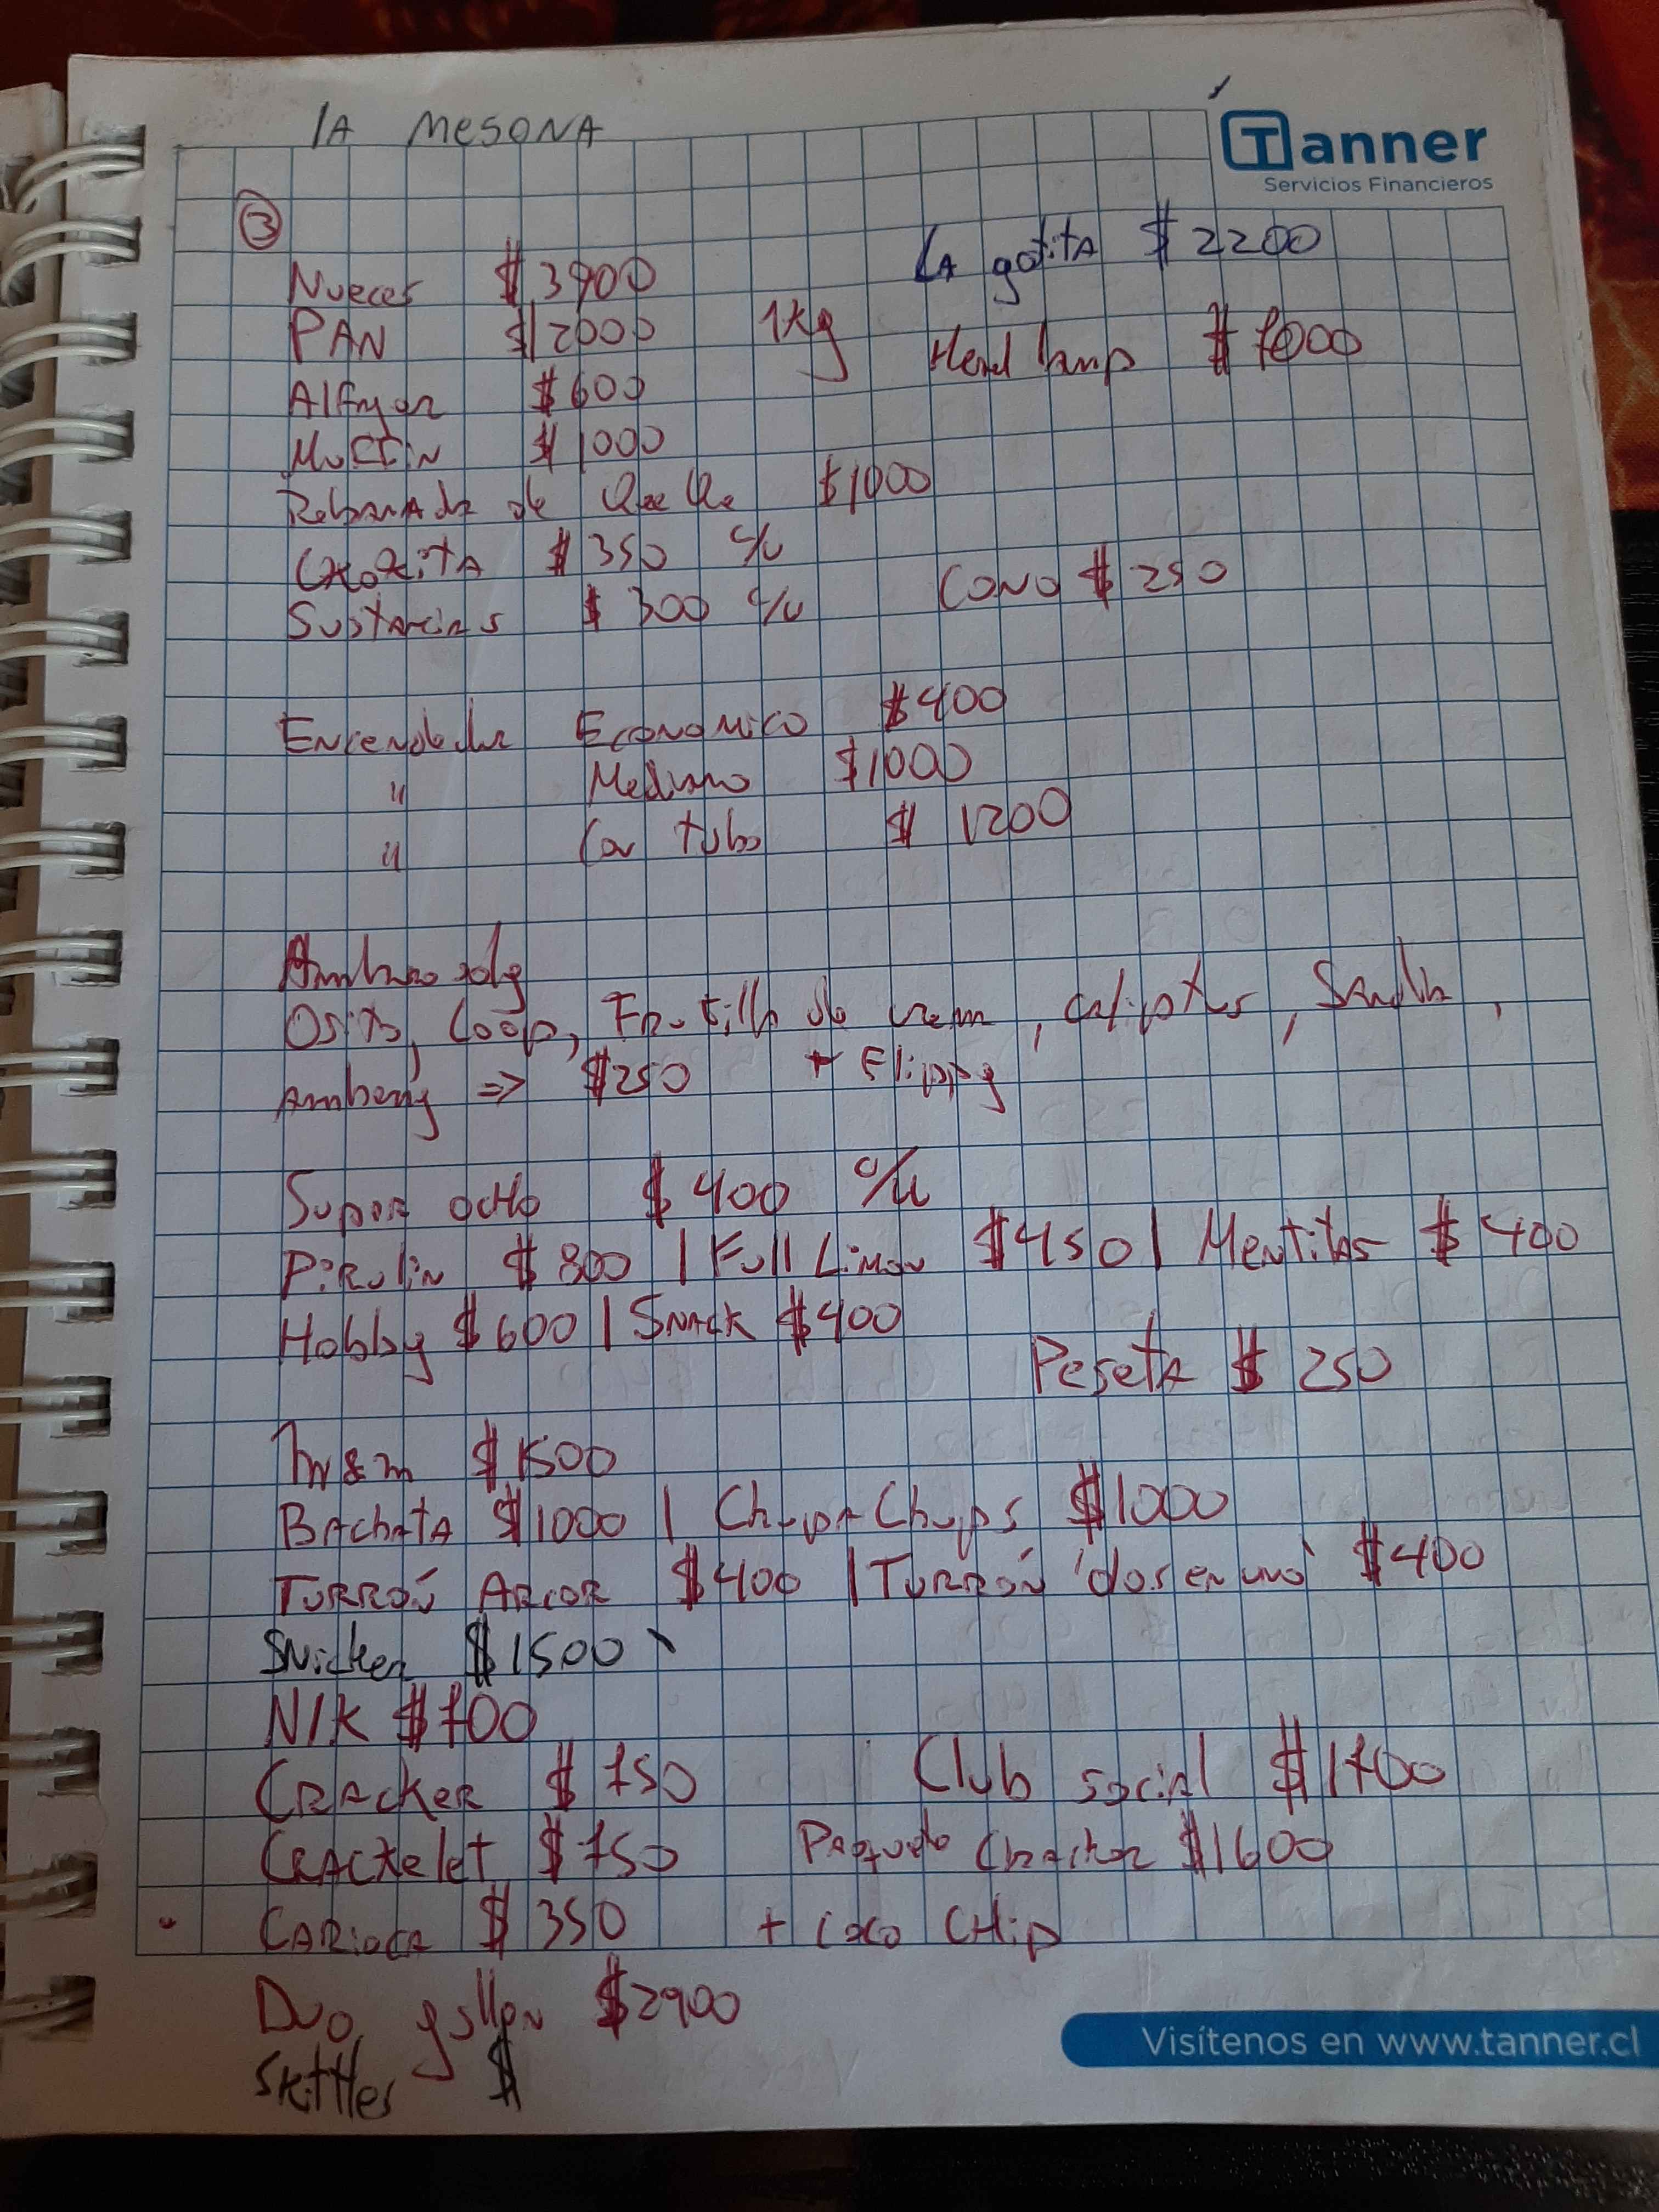 LA MESONA
Tanner
Servicios Financieros
3
La gotita $2200
Nueces $3900
PAN $2000 1kg
Head lamp $7000
Alfajor $600
Muffin $1000
Rebanada de Queque $1000
CHOKITA $350 c/u
CONO $250
Sustancias $300 c/u
Encendedor Economico $400
" Mediano $1000
" Con tubo $1200
Ambrosoly
Ositos, Loop, Frutilla de crema, calipstus, Sandia,
Amberry => $250 + Flippy
Super ocho $400 c/u
Pirulin $800 | Full Limon $450 | Mentitas $400
Hobby $600 | Snack $400
Peseta $250
M&M $1500
BAchatA $1000 | Chupa Chups $1000
Turrón Arcor $400 | Turrón 'dos en uno' $400
Snicker $1500
NIK $700
Cracker $750
Club social $1700
Crackelet $750 Paquete Cracker $1600
CARiocA $350 + Coco CHip
Duo gallon $2900
Skittles $
Visítenos en www.tanner.cl